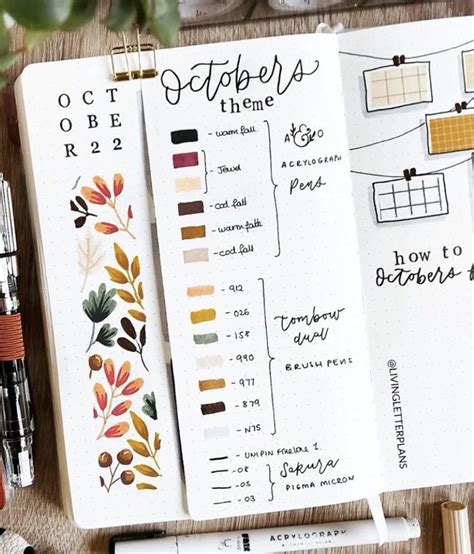 OCT
OBE
R22
octobers
theme
- warm fall
- Jewel
- cod fall
- warm fall
- cod fall
A&O
ACRYLOGRAPH
Pens
- 912
- 026
- 158
- 990
- 977
- 879
- N75
Tombow
dual
BRUSH PENS
- UNIPIN fineline 1
- 08
- 05
- 03
Sakura
PIGMA MICRON
how to
octobers
@LIVINGLETTERPLANS
ACRYLOGRAPH